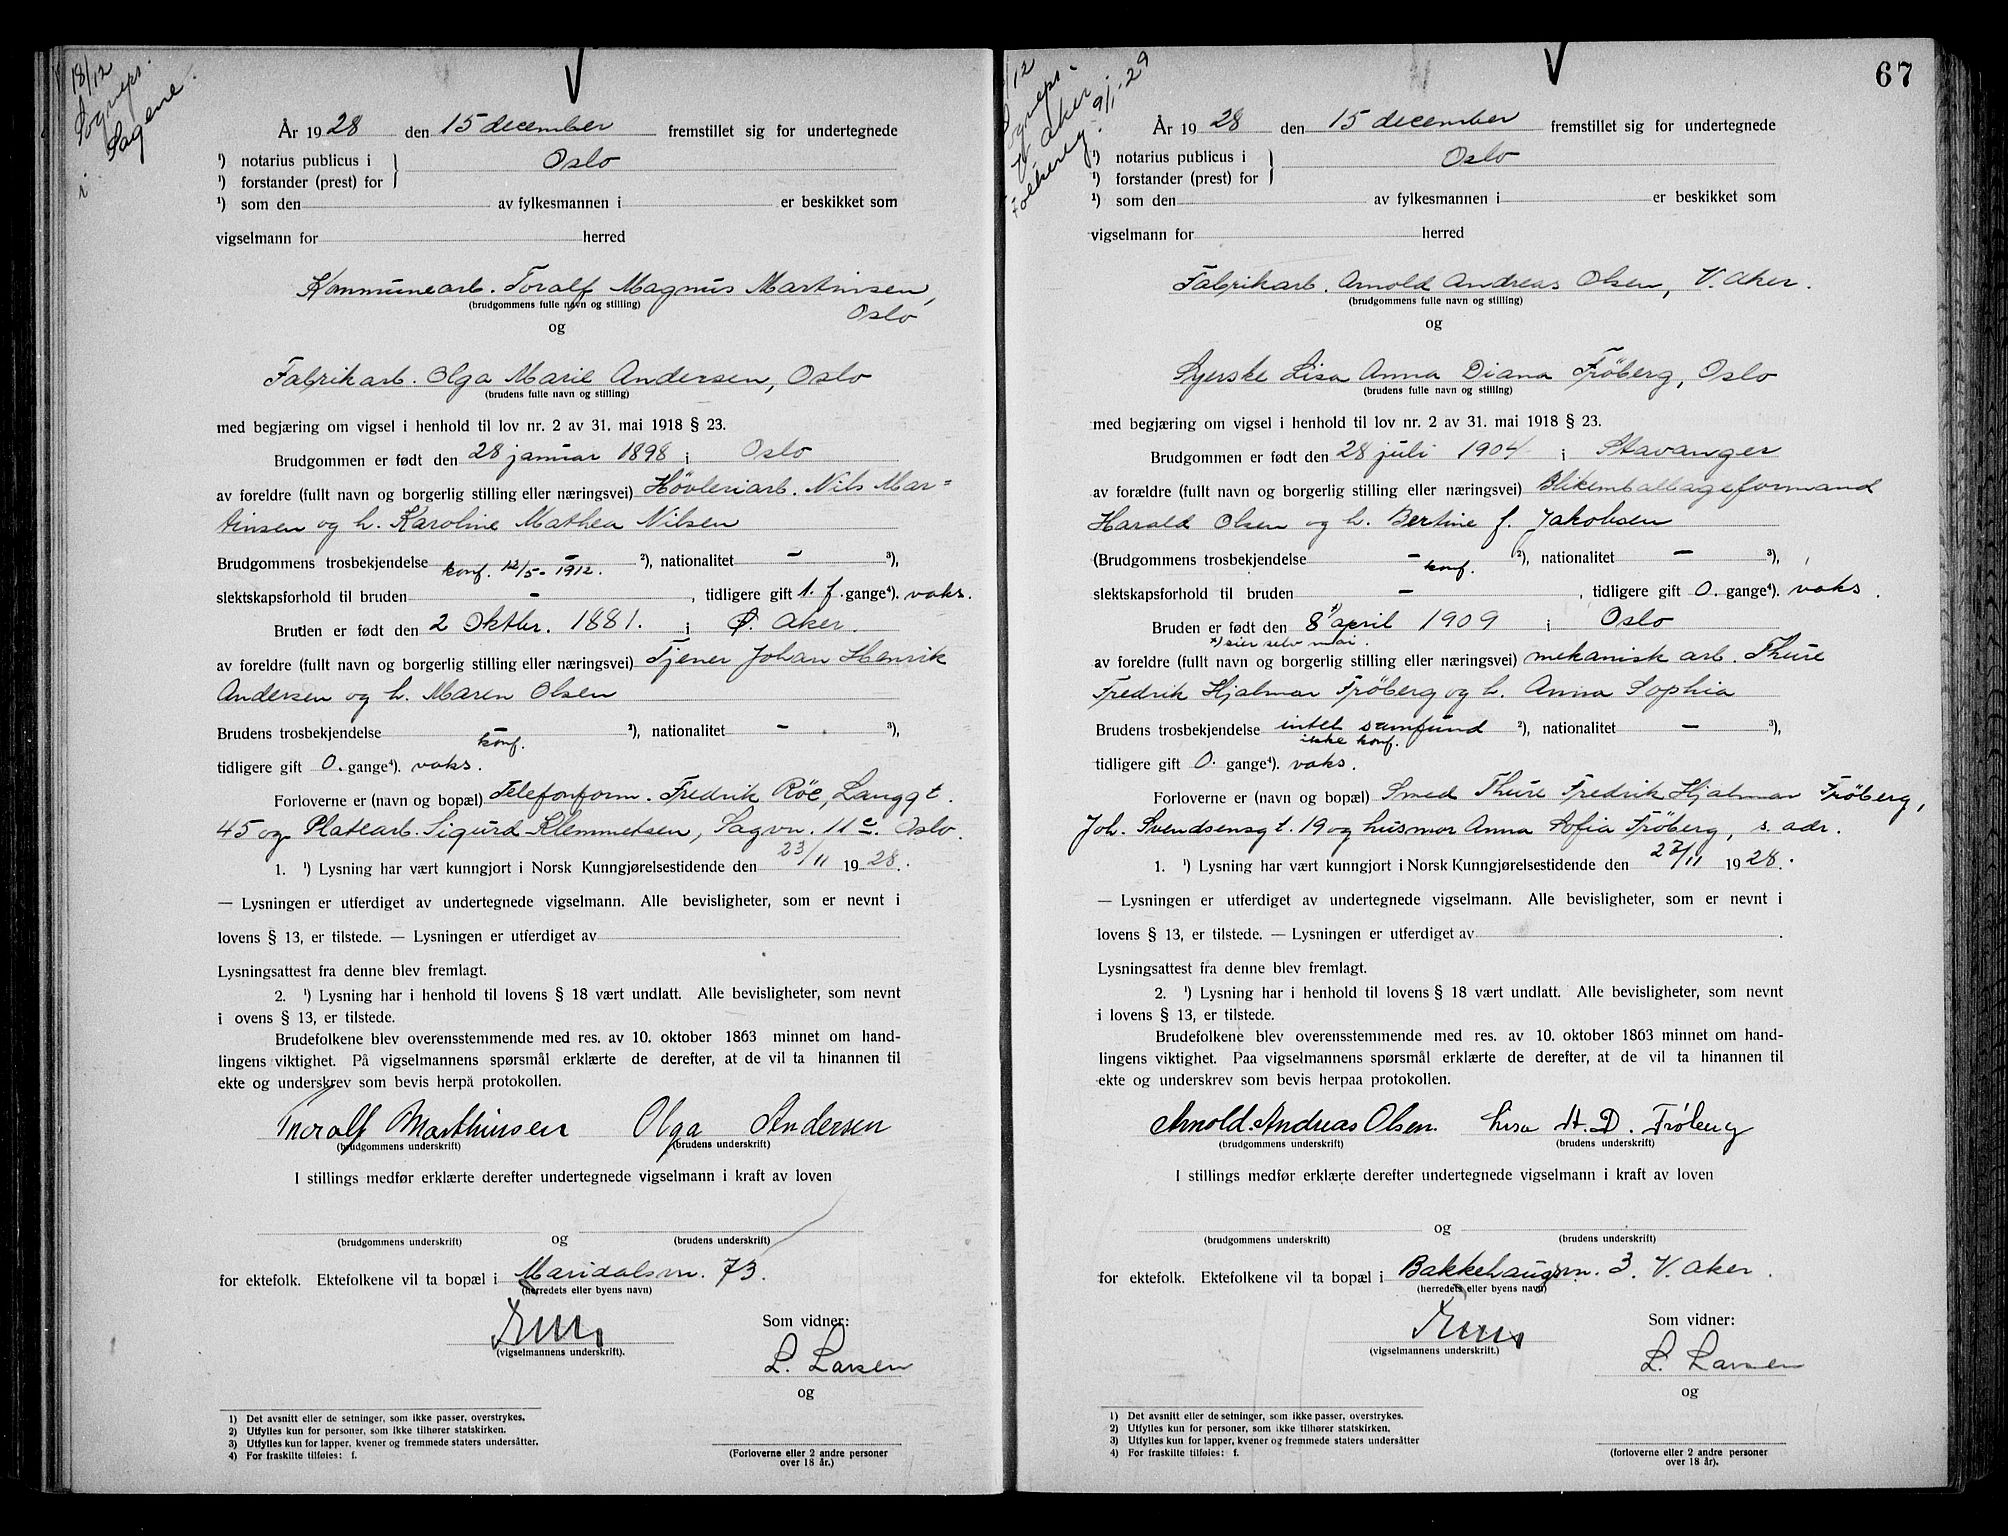 18/12
Sogneps.
i Sagene.
År 1928 den 15 december fremstillet sig for undertegnede
¹) notarius publicus i
Oslo
¹) forstander (prest) for
¹) som den av fylkesmannen i er beskikket som
vigselmann for herred
Kommunearb. Toralf Magnus Martinsen,
(brudgommens fulle navn og stilling)
Oslo
og
Fabrikarb. Olga Marie Andersen, Oslo
(brudens fulle navn og stilling)
med begjæring om vigsel i henhold til lov nr. 2 av 31. mai 1918 § 23.
Brudgommen er født den 28 januar 1898 i Oslo
av foreldre (fullt navn og borgerlig stilling eller næringsvei) Høvleriarb. Nils Mar=
tinsen og h. Karoline Mathea Nilsen
Brudgommens trosbekjendelse – ²), nationalitet – ³),
konf. 12/5-1912.
slektskapsforhold til bruden – , tidligere gift 1. f. gange⁴). vaks.
Bruden er født den 2 Oktbr. 1881. i Ø. Aker.
av foreldre (fullt navn og borgerlig stilling eller næringsvei) Tjener Johan Henrik
Andersen og h. Maren Olsen
Brudens trosbekjendelse – ²), nationalitet – ³),
konf.
tidligere gift 0. gange⁴). vaks.
Forloverne er (navn og bopæl) Telefonform. Fredrik Röe, Langgt.
45 og Platearb. Sigurd Klemmetsen, Sagvn. 11c. Oslo.
1. ¹) Lysning har vært kunngjort i Norsk Kunngjørelsestidende den 23/11 1928.
— Lysningen er utferdiget av undertegnede vigselmann. Alle bevisligheter, som er nevnt i
lovens § 13, er tilstede. — Lysningen er utferdiget av
Lysningsattest fra denne blev fremlagt.
2. ¹) Lysning har i henhold til lovens § 18 vært undlatt. Alle bevisligheter, som nevnt
i ovens § 13, er tilstede.
Brudefolkene blev overensstemmende med res. av 10. oktober 1863 minnet om hand-
lingens viktighet. På vigselmannens spørsmål erklærte de derefter, at de vil ta hinannen til
ekte og underskrev som bevis herpå protokollen.
Thoralf Marthinsen Olga Andersen
(brudgommens underskrift) (brudens underskrift)
I stillings medfør erklærte derefter undertegnede vigselmann i kraft av loven
og
(brudgommens underskrift) (brudens underskrift)
for ektefolk. Ektefolkene vil ta bopæl i Maridalsvn. 73.
(herredets eller byens navn)
Som vidner:
(vigselmannens underskrift).
L. Larsen
og
1) Det avsnitt eller de setninger, som ikke passer, overstrykes.
2) Utfylles kun for personer, som ikke tilhører statskirken.
3) Utfylles kun for lapper, kvener og fremmede staters undersåtter.
4) For fraskilte tilføies: f.
(Forloverne eller 2 andre personer
over 18 år.)
67
/12
Sogneps.
V. Aker.
Folkereg. 9/1-29
År 1928 den 15 december fremstillet sig for undertegnede
¹) notarius publicus i
Oslo
¹) forstander (prest) for
¹) som den av fylkesmannen i er beskikket som
vigselmann for herred
Fabrikarb. Arnold Andreas Olsen, V. Aker.
(brudgommens fulle navn og stilling)
og
Syerske Lisa Anna Diana Fröberg, Oslo
(brudens fulle navn og stilling)
med begjæring om vigsel i henhold til lov nr. 2 av 31. mai 1918 § 23.
Brudgommen er født den 28 juli 1904 i Stavanger
av forældre (fullt navn og borgerlig stilling eller næringsvei) Blikemballageformand
Harald Olsen og h. Bertine f. Jakobsen
(Brudgommens trosbekjendelse – ²), nationalitet – ³),
konf.
slektskapsforhold til bruden – , tidligere gift 0. gange⁴). vaks.
Bruden er født den 8 *) april 1909 i Oslo
*) sier selv mai.
av foreldre (fullt navn og borgerlig stilling eller næringsvei) mekanisk arb. Thure
Fredrik Hjalmar Fröberg og h. Anna Sophia
Brudens trosbekjendelse intet samfund ²), nationalitet – ³),
ikke konf.
tidligere gift 0. gange⁴). vaks.
Forloverne er (navn og bopæl) Smed Thure Fredrik Hjalmar Fröberg,
Joh. Svendsensgt. 19 og husmor Anna Sofia Fröberg, s. adr.
1. ¹) Lysning har vært kunngjort i Norsk Kunngjørelsestidende den 27/11 1928.
— Lysningen er utferdiget av undertegnede vigselmann. Alle bevisligheter, som er nevnt i
lovens § 13, er tilstede. — Lysningen er utferdiget av
Lysningsattest fra denne blev fremlagt.
2. ¹) Lysning har i henhold til lovens § 18 vært undlatt. Alle bevisligheter, som nevnt
i lovens § 13, er tilstede.
Brudefolkene blev overensstemmende med res. av 10. oktober 1863 minnet om hand-
lingens viktighet. Paa vigselmannens spørsmål erklærte de derefter, at de vil ta hinannen til
ekte og underskrev som bevis herpaa protokollen.
Arnold Andreas Olsen. Lisa A. D. Fröberg
(brudgommens underskrift) (brudens underskrift)
I stillings medfør erklærte derefter undertegnede vigselmann i kraft av loven
og
(brudgommens underskrift) (brudens underskrift)
for ektefolk. Ektefolkene vil ta bopæl i Bakkehaugvn. 3. V. Aker.
(herredets eller byens navn)
Som vidner:
(vigselmannens underskrift.)
L. Larsen
og
1) Det avsnitt eller de setninger, som ikke passer, overstrykes.
2) Utfylles kun for personer, som ikke tilhører statskirken.
3) Utfylles kun for lapper, kvener og fremmede staters undersåtter
4) For fraskilte tilføies: f.
(forloverne eller 2 andre personer
over 18 år).